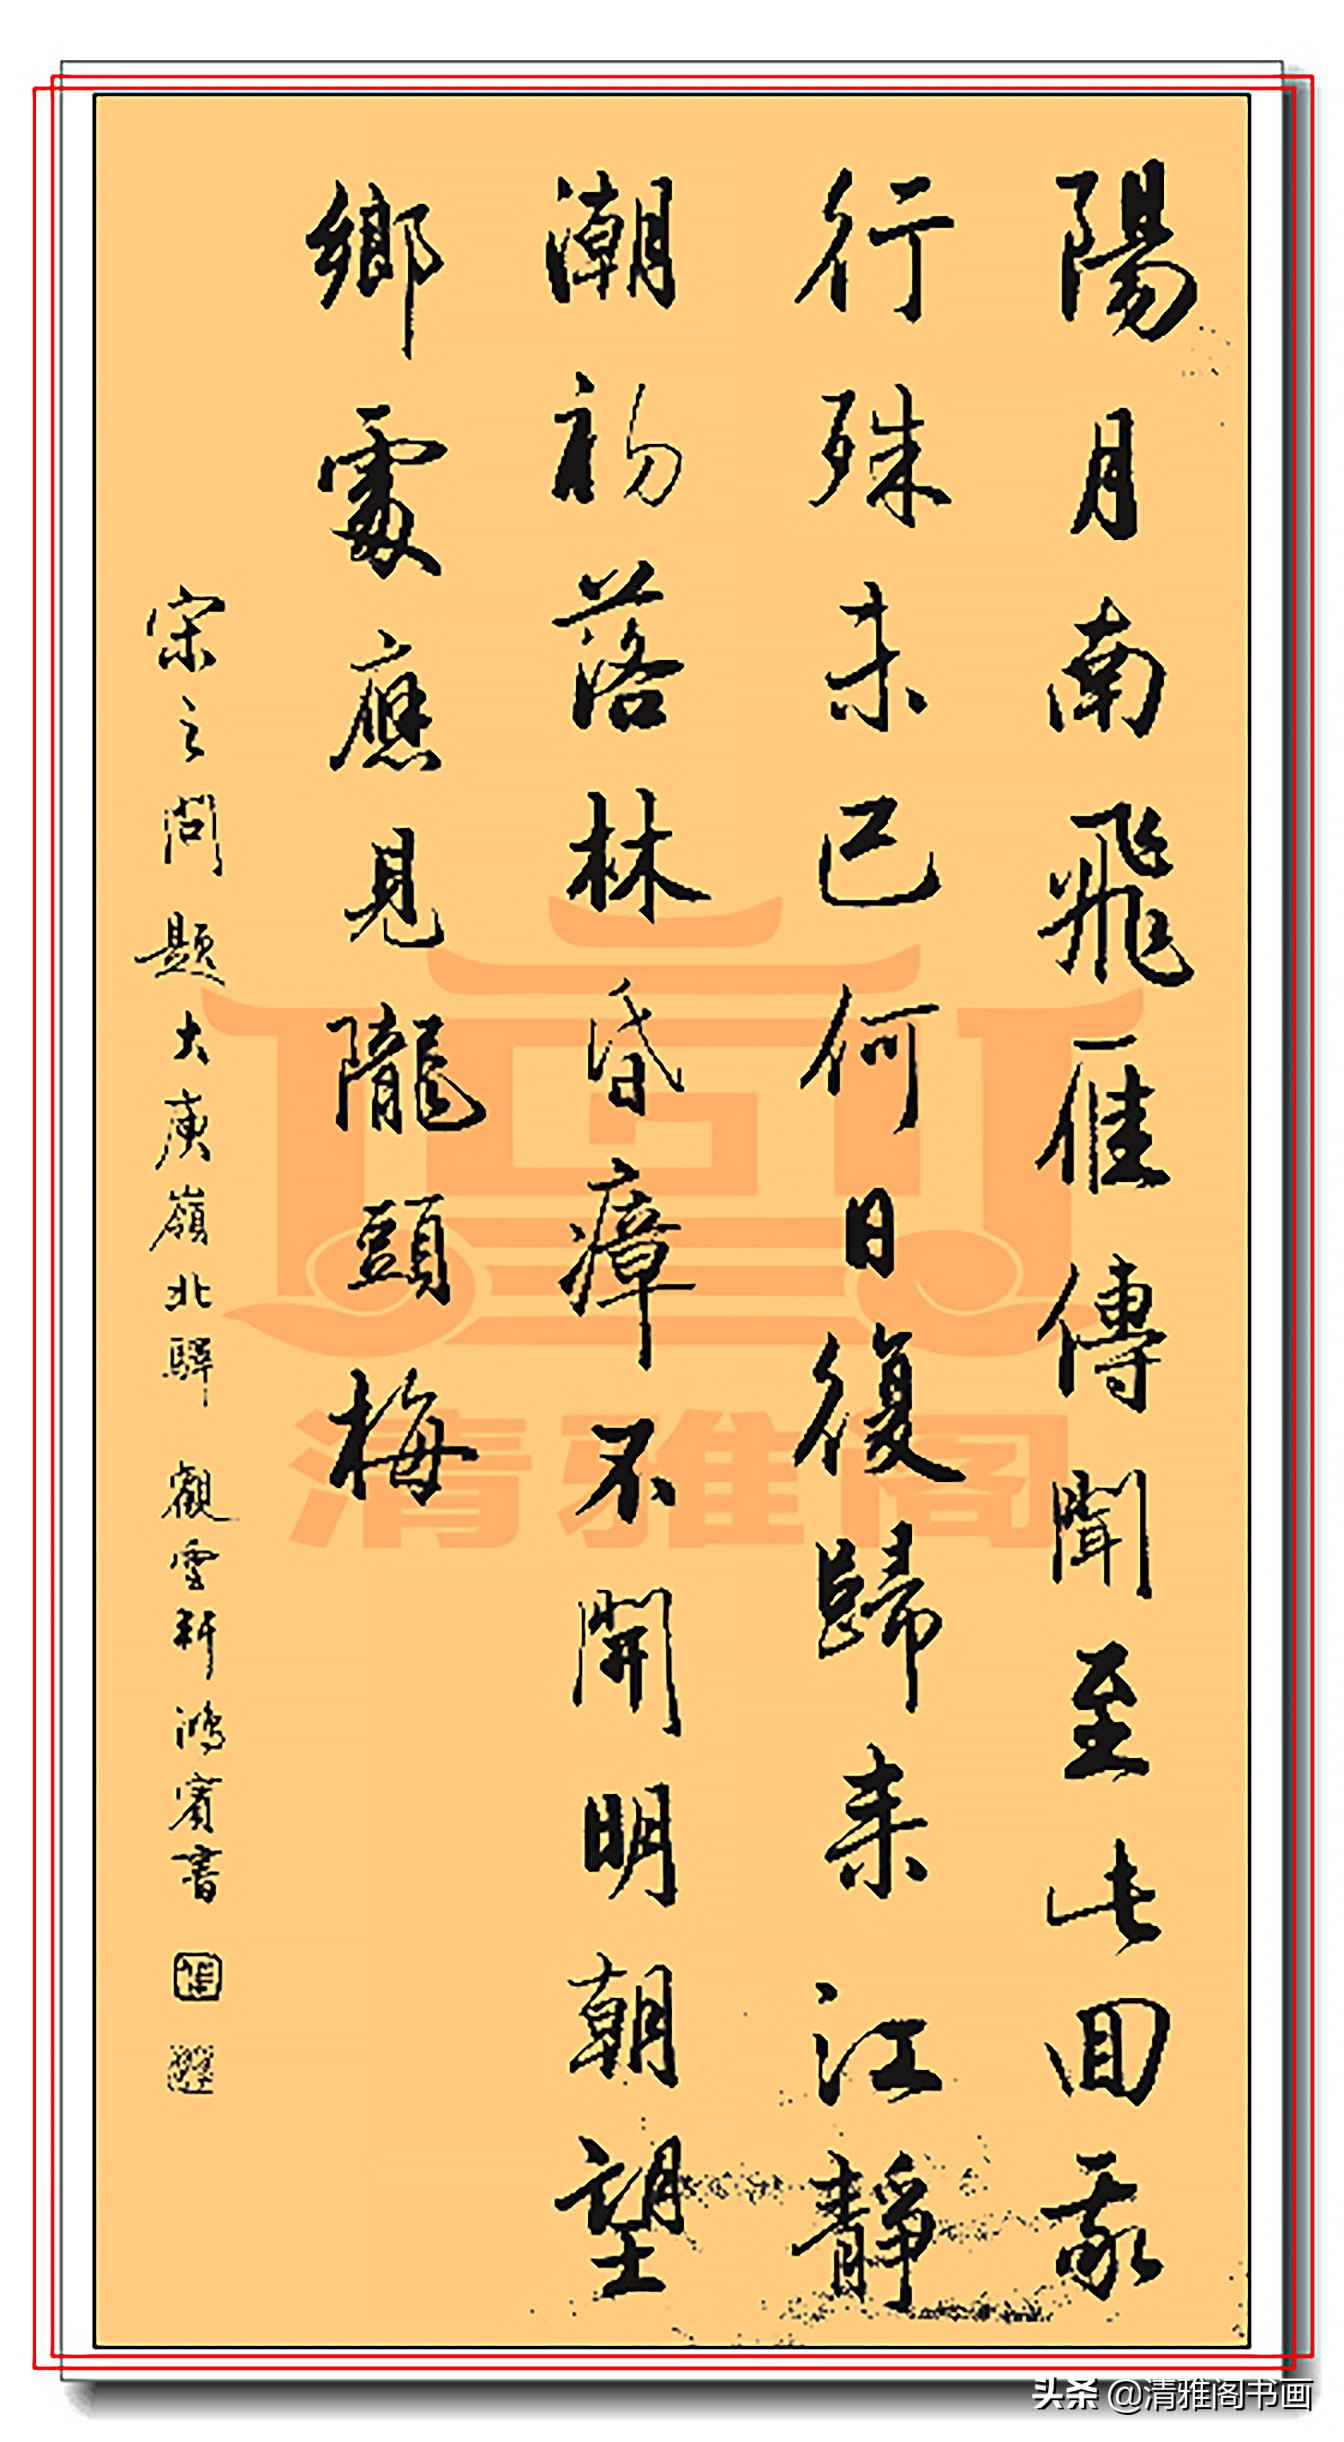 陽月南飛雁傳聞至此囬我
行殊未已何日復歸来江靜
潮初落林昏瘴不開明朝望
鄉處應見隴頭梅
宋之問題大庾嶺北驛 觀雲軒鴻賓書
清雅阁
头条 @清雅阁书画